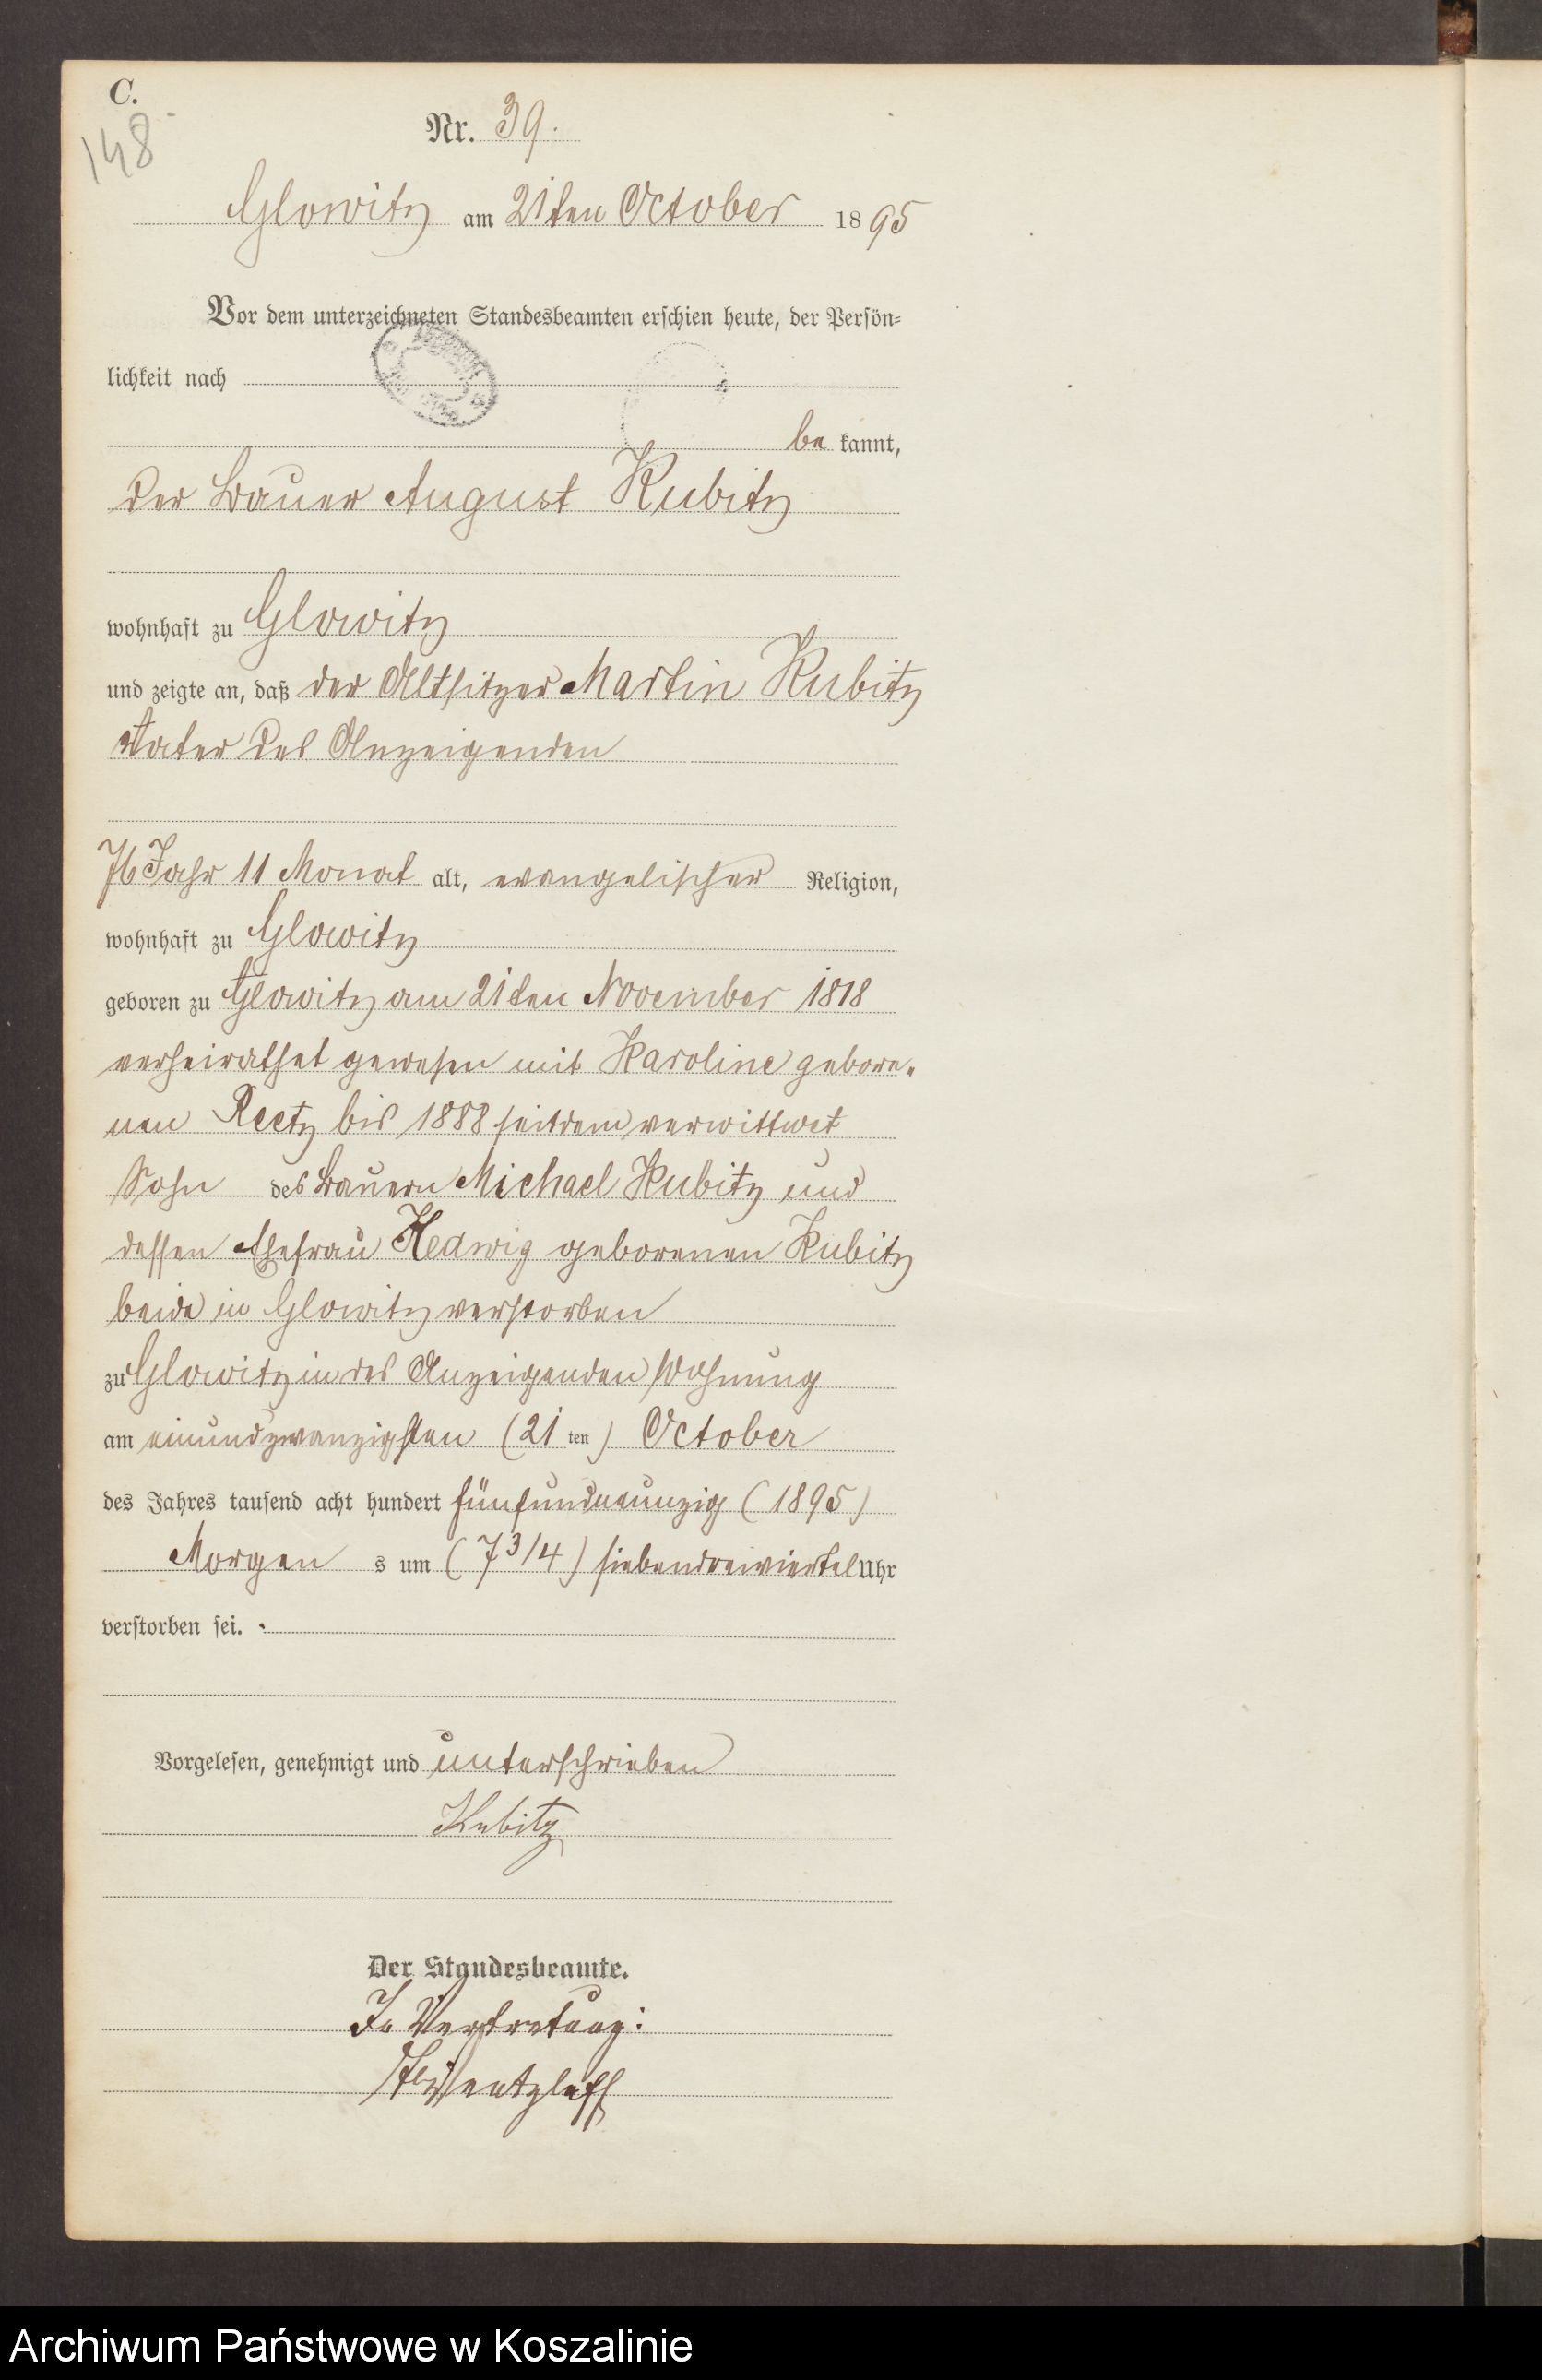 C.
148
Nr. 39.
Glowitz am 21ten October 1895
Vor dem unterzeichneten Standesbeamten erschien heute, der Persön=
lichkeit nach
be kannt,
der Bauer August Kubitz
wohnhaft zu Glowitz
und zeigte an, daß der Altsitzer Martin Kubitz
Vater des Anzeigenden
76 Jahr 11 Monat alt, evangelischer Religion,
wohnhaft zu Glowitz
geboren zu Glowitz am 21ten November 1818
verheirathet gewesen mit Karoline gebore„
nen Reetz bis 1888 seitdem verwittwet
Sohn des Bauern Michael Kubitz und
dessen Ehefrau Hedwig geborenen Kubitz
beide in Glowitz verstorben
zu Glowitz in des Anzeigenden Wohnung
am einundzwanzigsten (21 ten) October
des Jahres tausend acht hundert fünfundneunzig (1895)
Morgen s um (7 3/4) siebendreiviertel Uhr
verstorben sei.
Vorgelesen, genehmigt und unterschrieben
Kubitz
Der Standesbeamte.
In Vertretung:
Archiwum Państwowe w Koszalinie